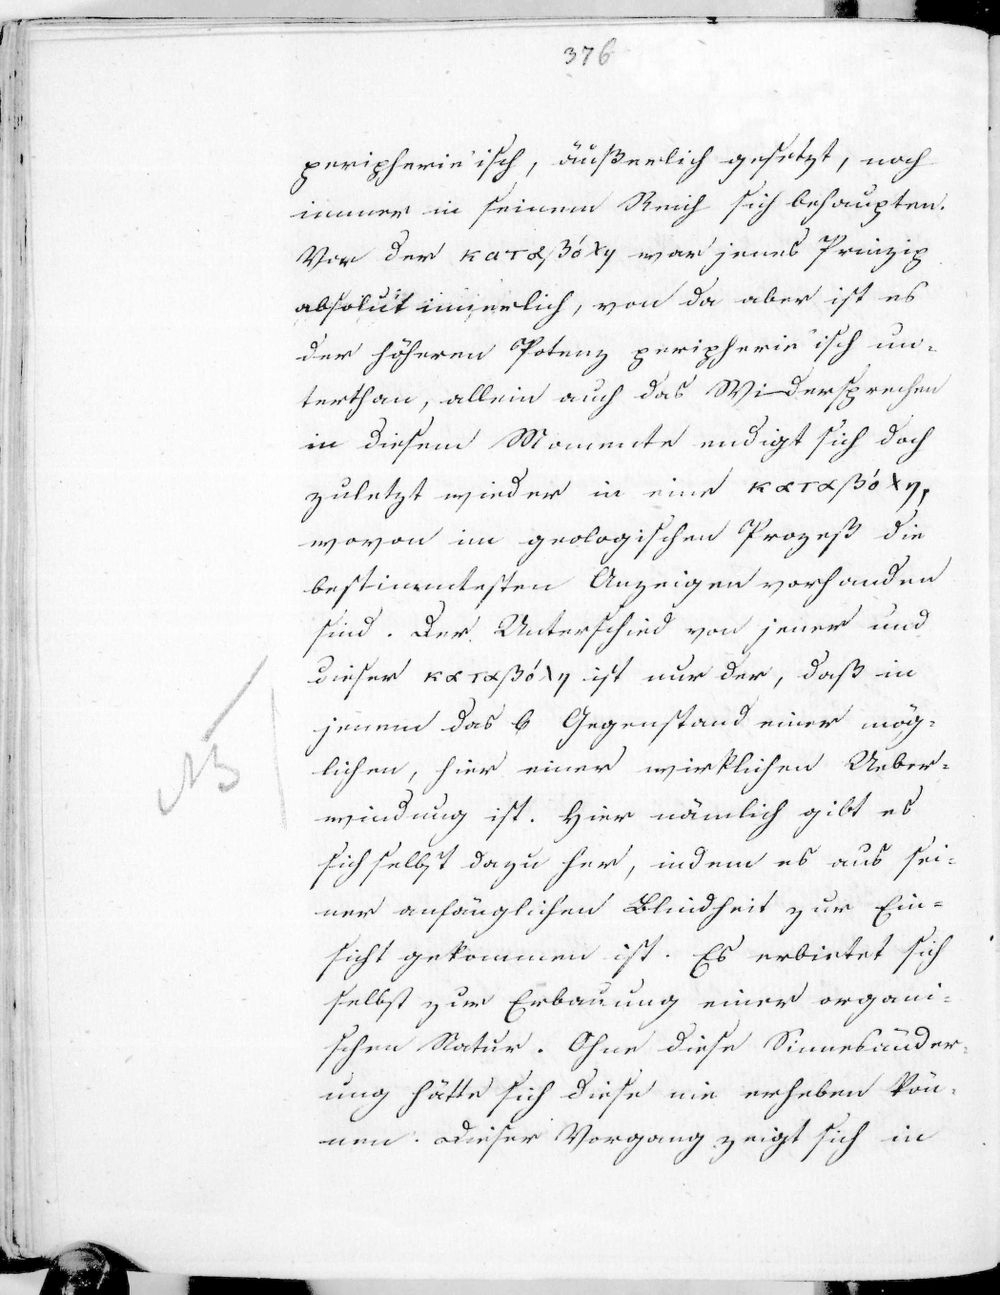 376
peripherie'isch, äußerlich gesetzt, noch
immer in seinem Reich sich behaupten.
Vor der καταβόλη war jenes Prinzip
absolut innerlich, von da aber ist es
der höheren Potenz peripherie'isch un-
terthan, allein auch das Widersprechen
in diesem Momente endigt sich doch
zuletzt wieder in eine καταβόλη,
wovon im geologischen Prozeß die
bestimmtesten Anzeigen vorhanden
sind. Der Unterschied von jener und
dieser καταβόλη ist nur der, daß in
jenem das b Gegenstand einer mög-
lichen, hier einer wirklichen Ueber-
windung ist. Hier nämlich gibt es
sich selbst dazu her, indem es aus sei-
ner anfänglichen Blindheit zur Ein-
sicht gekommen ist. Es erbietet sich
selbst zur Erbauung einer organi-
schen Natur. Ohne diese Sinnesänder-
ung hätte sich diese nie erheben kön-
nen. Dieser Vorgang zeigt sich in
NB